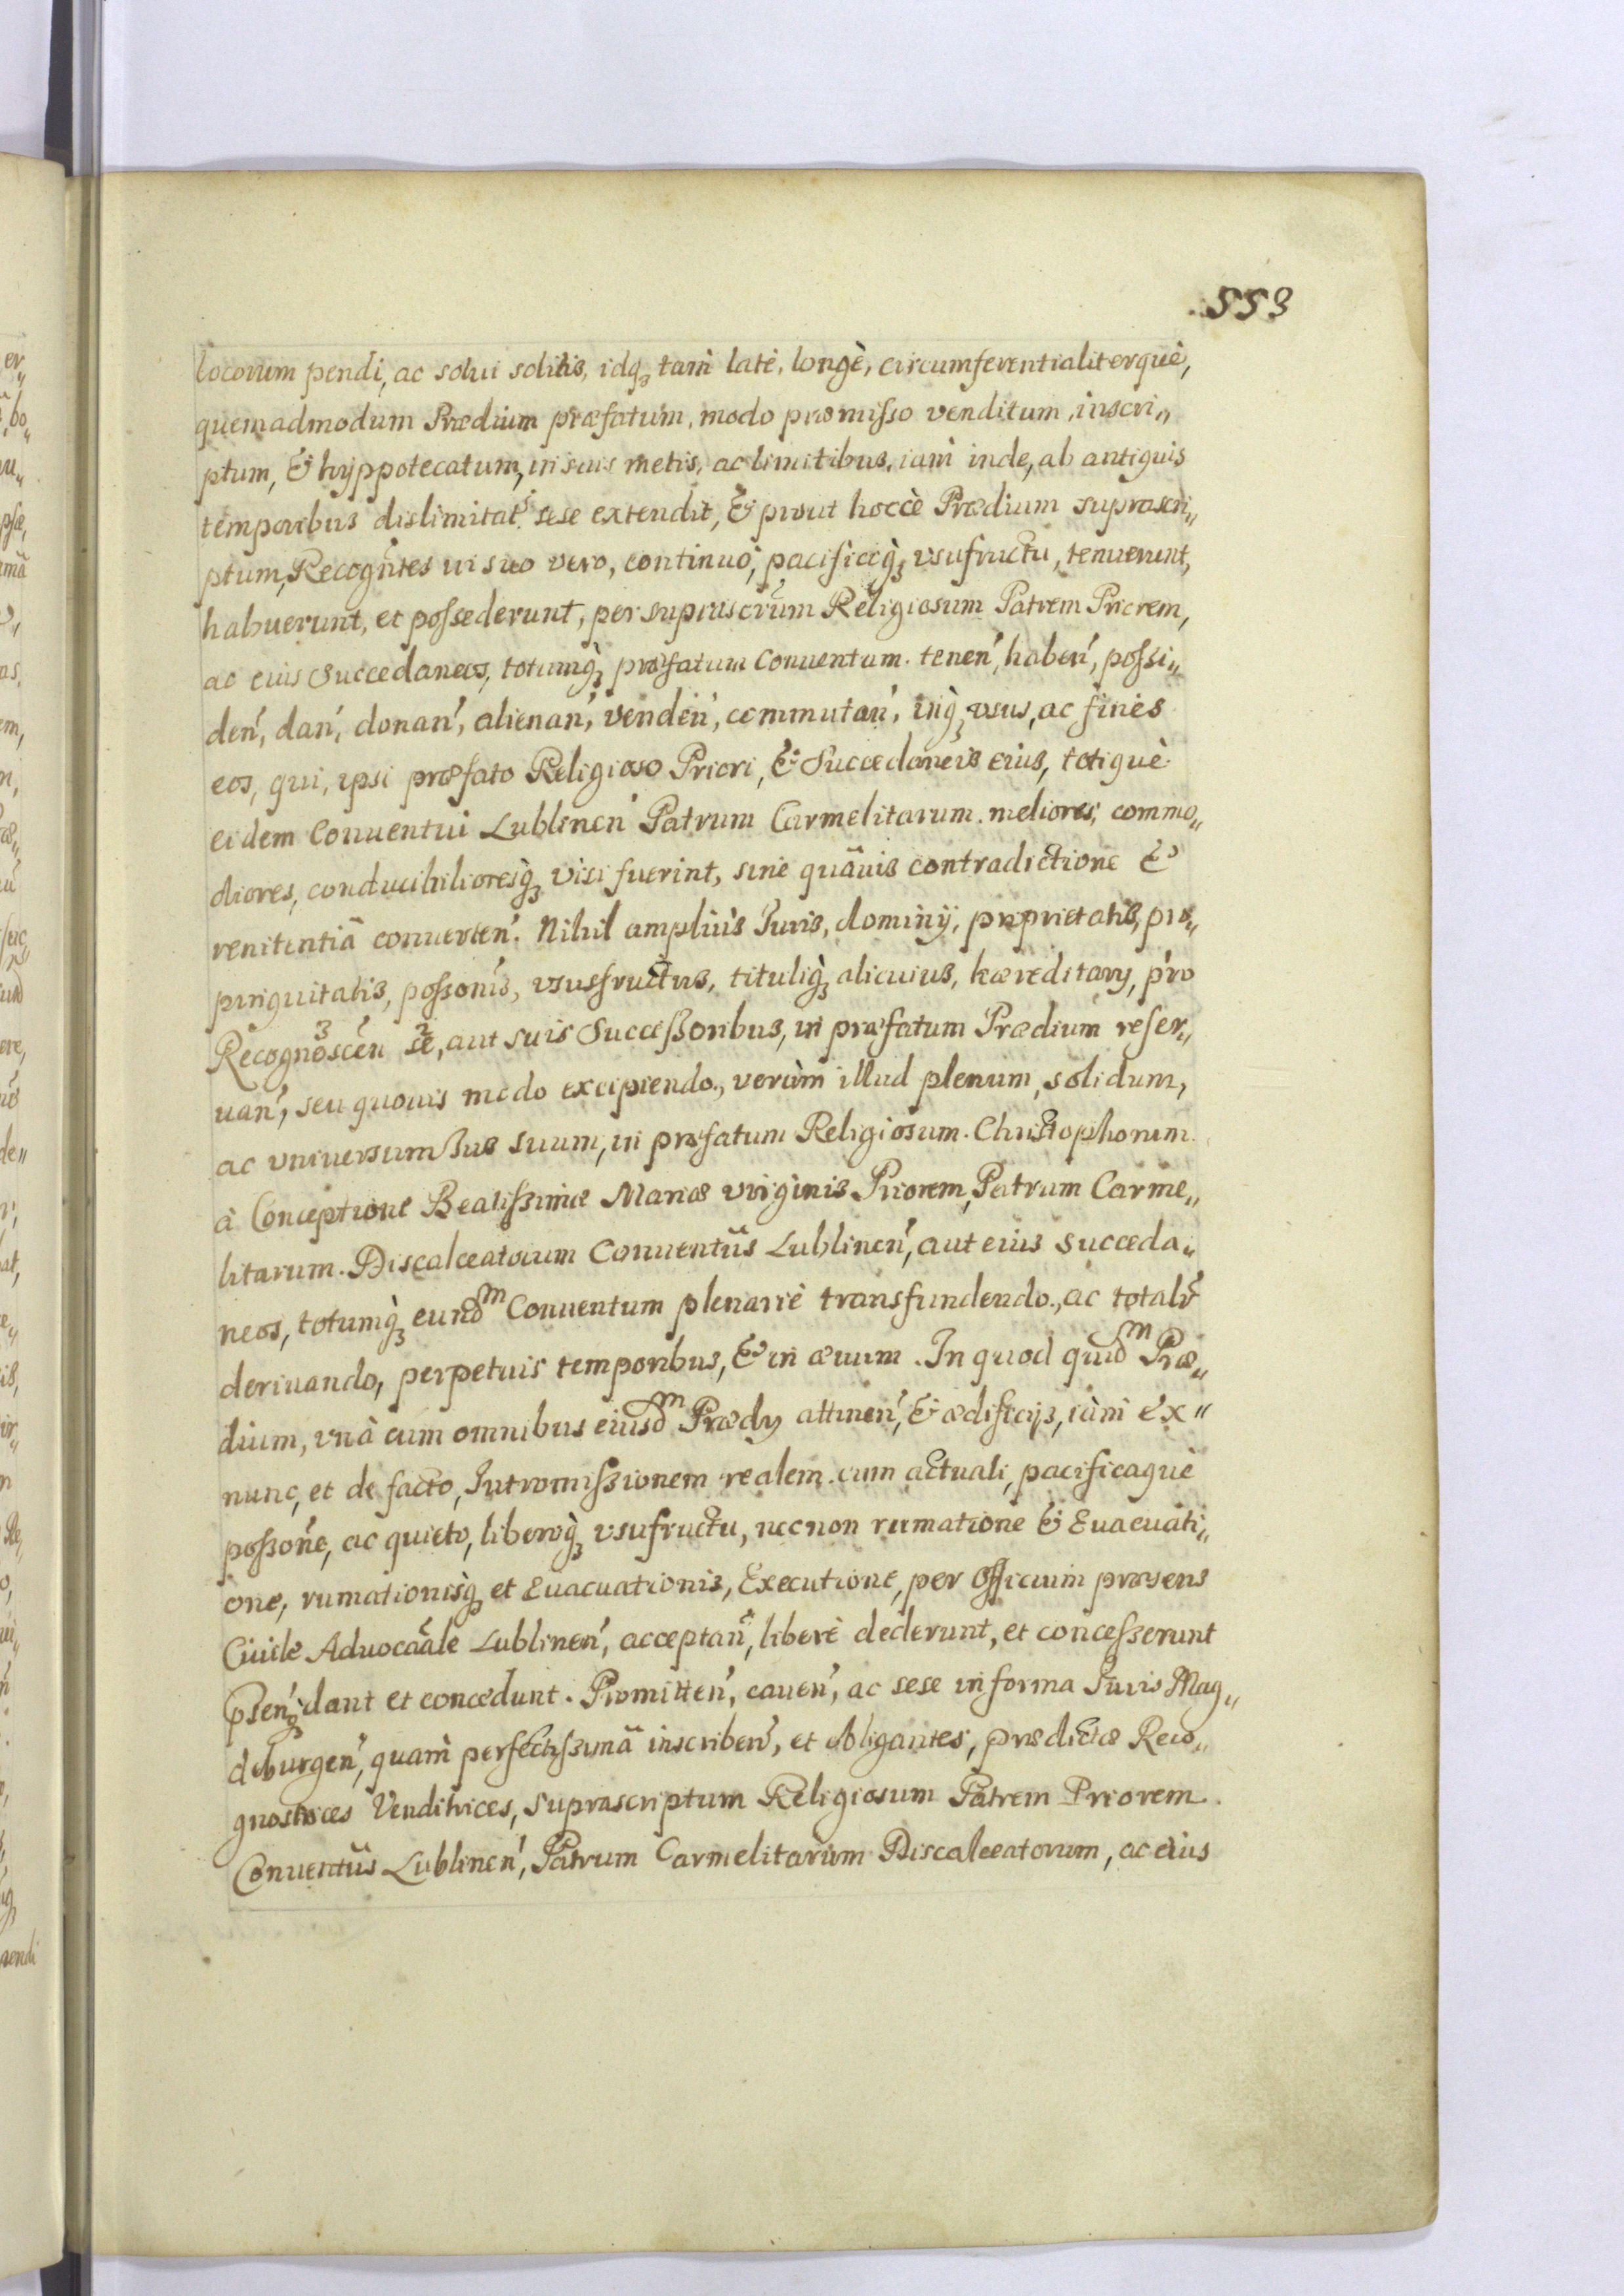 553
locorum pendi, ac solui solitis, idqꝫ tàm latè, longè, circumferentialiterquè,
quemadmodum Prædium præfatum, modo præmisso venditum, inscri„
ptum, & hyppotecatum, in suis metis, ac limitibus, iàm inde, ab antiquis
temporibus dislimitat: sese extendit, & prout hoccè Prædium suprascri„
ptum, Recogñtes in suo vero, continuo, pacificoq̀ꝫ vsufructu, tenuerunt,
habuerunt, et possederunt, per suprascr̃um Religiosum Patrem Priorem,
ac eius Succedaneos, totumq̀ꝫ præfatum Conuentum. tenen̕, haben̕, possi„
den̕, dan̕, donan̕, alienan̕, venden̕, commutan̕, inq̀ꝫ vsus, ac fines
eos, qui, ipsi præfato Religioso Priori, & Succedaneis eius, totiquè
eidem Conuentui Lublinen̕ Patrum Carmelitarum. meliores, commo„
diores, conducibilioresq̀ꝫ visi fuerint, sine quãuis contradictione &
renitentiâ conuerten̕. Nihil ampliùs Juris, dominÿ, proprietatis, pro„
pinquitatis, posso͠nis, vsusfructus, tituliq̀ꝫ alicuius, hæreditarÿ, pro
Recognoscen̕ se, aut suis Successoribus, in præfatum Prædium reser„
uan̕, seu quouis modo excipiendo., verùm illud plenum, solidum,
ac vniuersum Jus suum, in præfatum Religiosum. Christophorum.
à Conceptione Beatissimæ Mariæ virginis Priorem, Patrum Carme„
litarum. Discalceatorum Conuentûs Lublinen̕, aut eius Succeda„
neos, totumq̀ꝫ eundᵐ Conuentum plenariè transfundendo., ac totalr̃
deriuando, perpetuis temporibus, & in æuum. In quod quidᵐ Præ„
dium, vnà cum omnibus eiusdᵐ Prædÿ attinen̕, & ædificijs, iàm ex„
nunc, et de facto, Intromissionem realem. cum actuali, pacificaquè
posso͠ne, ac quieto, liberoq̀ꝫ vsufructu, nec non rumatione & Euacuati„
one, rumationisq̀ꝫ et Euacuationis, Executione, per Officium præsens
Ciuile Aduoca͠le Lublinen̕, acceptan̕, liberè dederunt, et concesserunt
p̃sen̕qꝫ dant et concedunt. Promitten̕, cauen̕, ac sese in forma Juris Mag„
deburgen̕, quàm perfectissimâ inscriben̕, et obligantes, prædictæ Reco„
gnostrices Venditrices, Suprascriptum Religiosum Patrem Priorem.
Conuentûs Lublinen̕, Patrum Carmelitarum Discalceatorum, ac eius